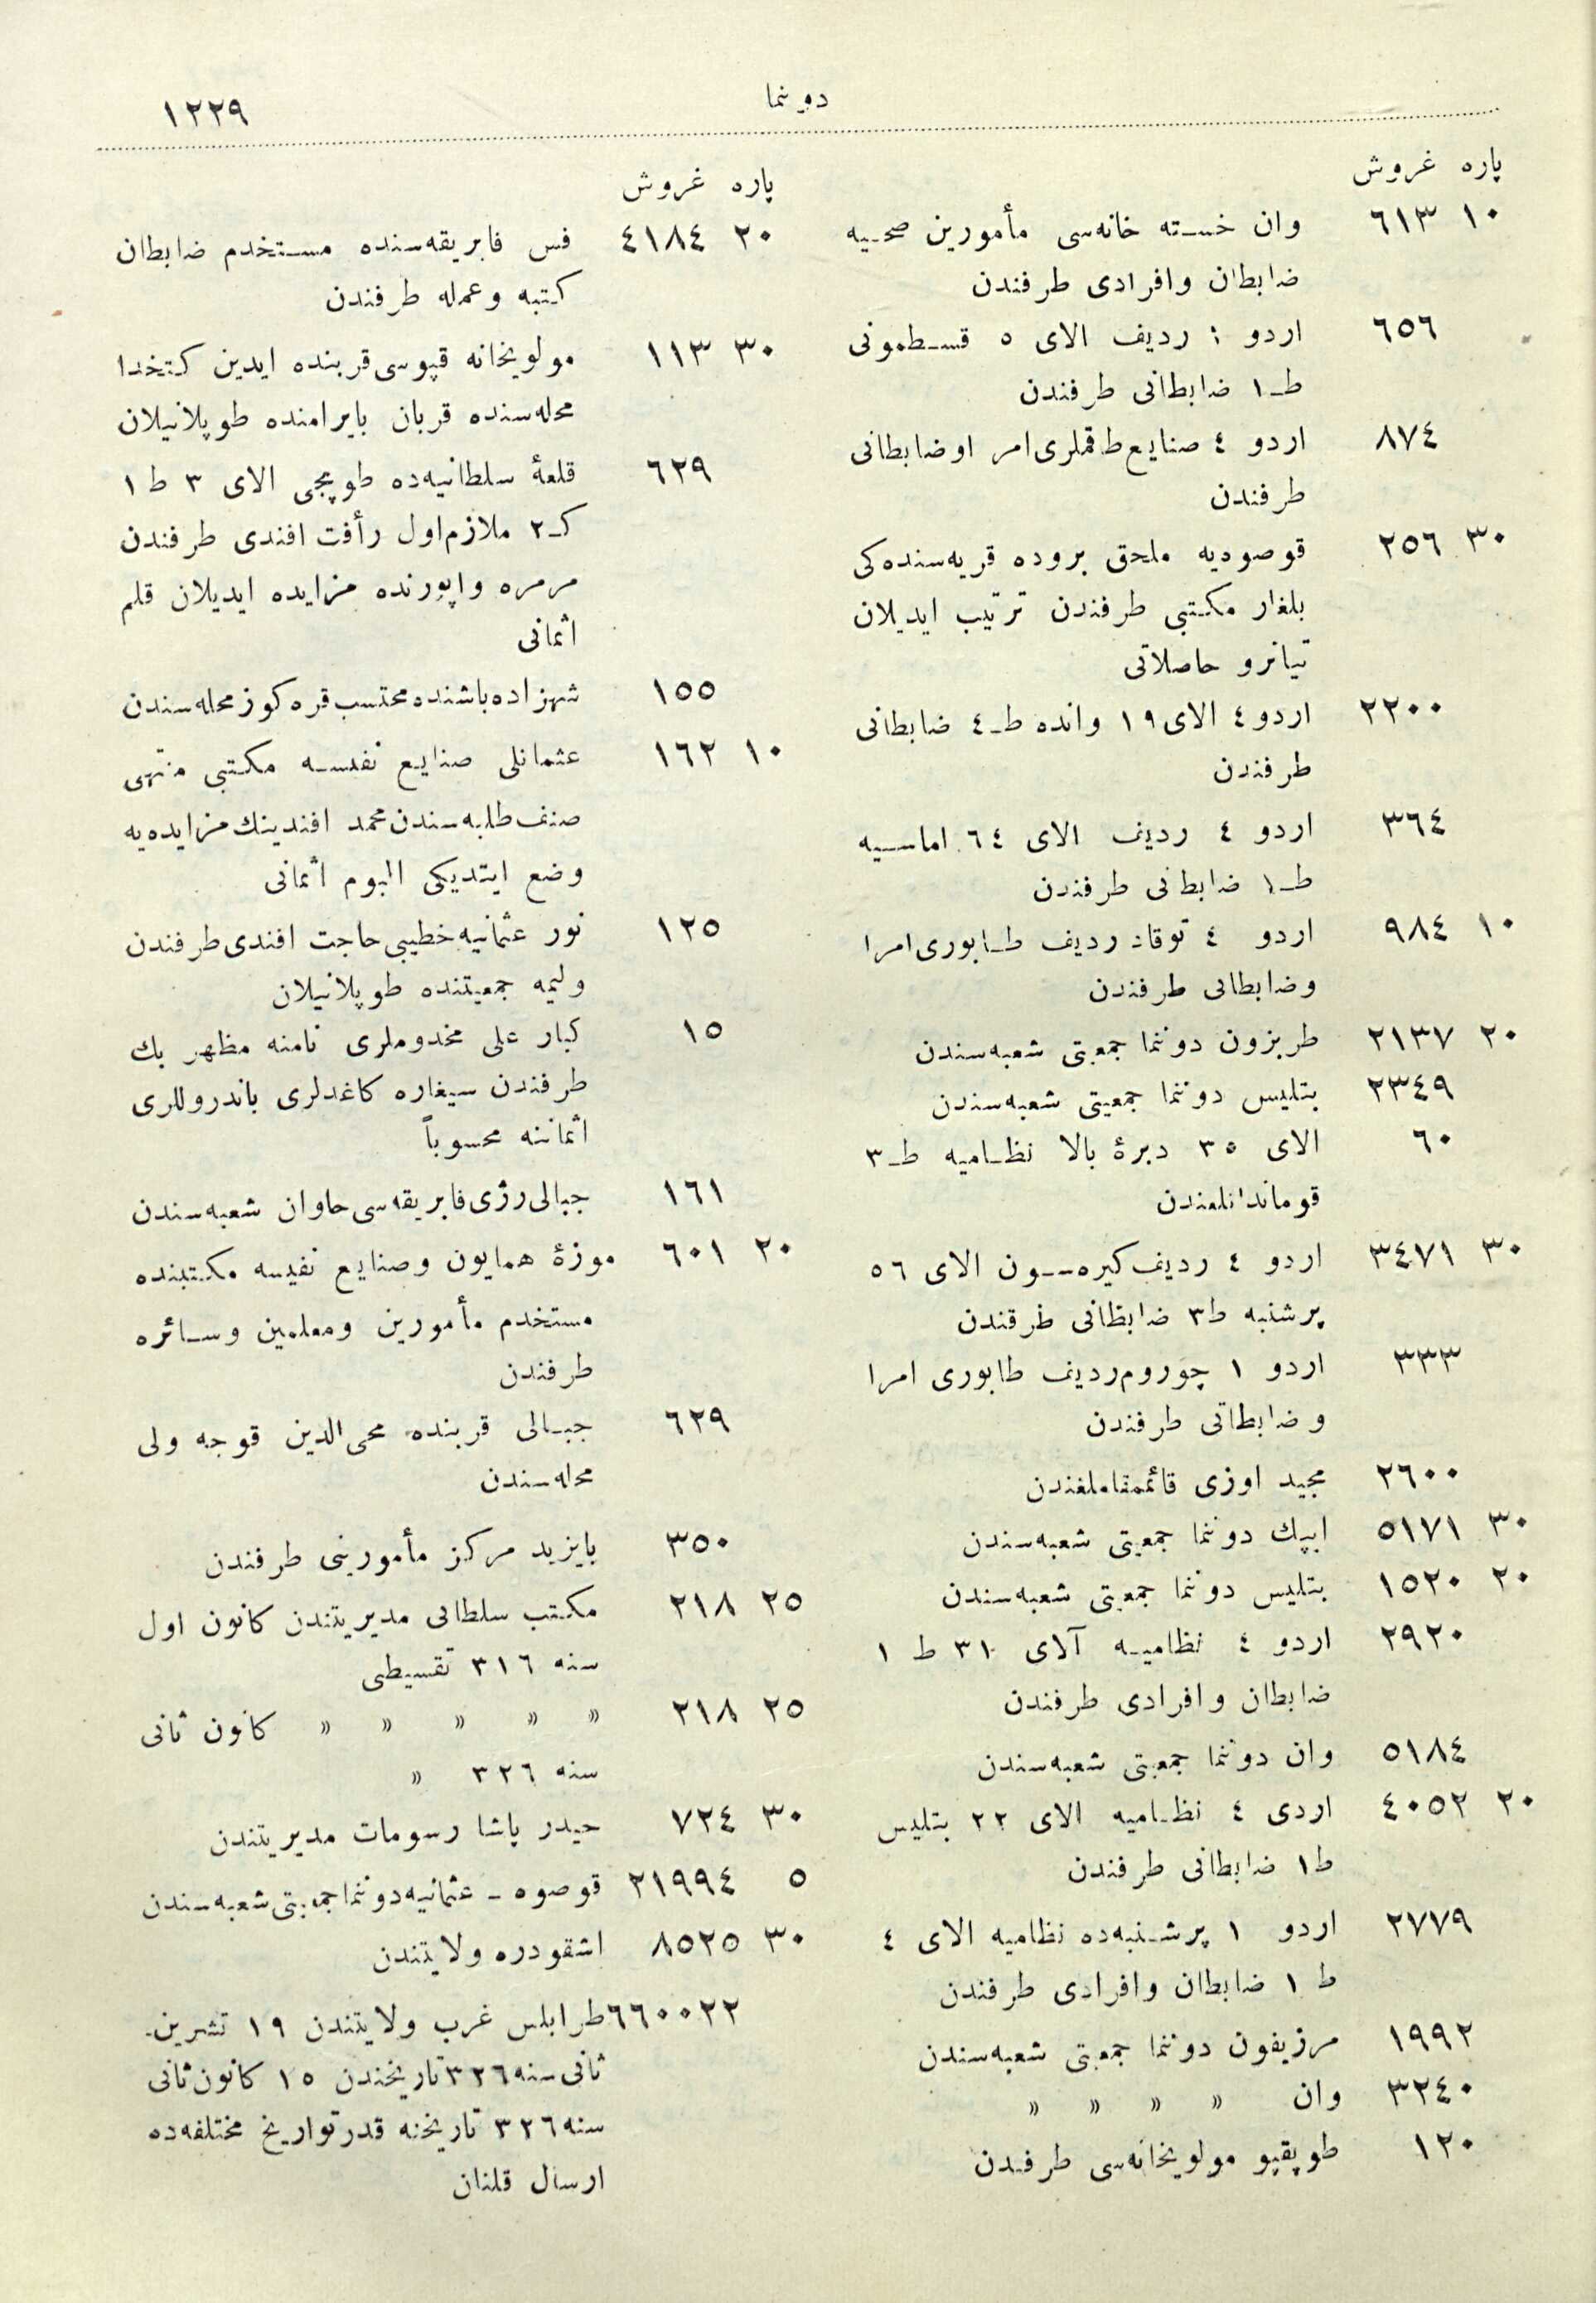 دوننما
١٢٢٩
پاره غروش
١٠ ٦١٣ وان خسته خانه‌سی مأمورین صحیه
ضابطان وافرادی طرفندن
٦٥٦ اردو ٤ ردیف الای ٥ قسطمونی
ط‍ـ١ ضابطانی طرفندن
٨٧٤ اردو ٤ صنایع طاقملری امر او ضابطانی
طرفندن
٣٠ ٢٥٦ قوصودیه ملحق بروده قریه‌سنده‌کی
بلغار مکتبی طرفندن ترتیب ایدیلان
تیاترو حاصلاتی
٢٢٠٠ اردو ٤ الای ١٩ وانده ط‍ـ٤ ضابطانی
طرفندن
٣٦٤ اردو ٤ ردیف الای ٦٤ اماسیه
ط‍ـ١ ضابطانی طرفندن
١٠ ٩٨٤ اردو ٤ توقاد ردیف طابوری امرا
وضابطانی طرفندن
٢٠ ٢١٣٧ طربزون دوننما جمعیتی شعبه‌سندن
٢٣٤٩ بتلیس دوننما جمعیتی شعبه‌سندن
٦٠ الای ٣٥ دبرهٔ بالا نظامیه ط‍ـ٣
قوماندانلغندن
٣٠ ٣٤٧١ اردو ٤ ردیف کیره‌سون الای ٥٦
پرشنبه ط٣ ضابطانی طرفندن
٣٣٣ اردو ١ چوروم ردیف طابوری امرا
وضابطاتی طرفندن
٢٦٠٠ مجید اوزی قائممقاملغندن
٣٠ ٥١٧١ ایپك دوننما جمعیتی شعبه‌سندن
٢٠ ١٥٢٠ بتلیس دوننما جمعیتی شعبه‌سندن
٢٩٢٠ اردو ٤ نظامیه آلای ٣١ ط ١
ضابطان وافرادی طرفندن
٥١٨٤ وان دوننما جمعیتی شعبه‌سندن
٢٠ ٤٠٥٢ اردی ٤ نظامیه الای ٢٢ بتلیس
ط١ ضابطانی طرفندن
٢٧٧٩ اردو ١ پرشنبه‌ده نظامیه الای ٤
ط ١ ضابطان وافرادی طرفندن
١٩٩٢ مرزیفون دوننما جمعیتی شعبه‌سندن
٣٢٤٠ وان » » » »
١٢٠ طوپقپو مولویخانه‌سی طرفندن
پاره غروش
٢٠ ٤١٨٤ فس فابریقه‌سنده مستخدم ضابطان
کتبه وعمله طرفندن
٣٠ ١١٣ مولویخانه قپوسی قربنده ایدین کتخدا
محله‌سنده قربان بایرامنده طوپلانیلان
٦٢٩ قلعهٔ سلطانیه‌ده طوپجی الای ٣ ط ١
ک‍ـ٢ ملازم اول رأفت افندی طرفندن
مرمره واپورنده مزایده ایدیلان قلم
اثمانی
١٥٥ شهزاده باشنده محتسب قره کوز محله‌سندن
١٠ ١٦٢ عثمانلی صنایع نفیسه مکتبی منتهی
صنف طلبه‌سندن محمد افندینك مزایده‌یه
وضع ایتدیکی البوم اثمانی
١٢٥ نور عثمانیه خطیبی حاجت افندی طرفندن
ولیمه جمعیتنده طوپلانیلان
١٥ کبار علی مخدوملری نامنه مظهر بك
طرفندن سیغاره کاغدلری باندروللری
اثماننه محسوباً
١٦١ جبالی رژی فابریقه‌سی حاوان شعبه‌سندن
٢٠ ٦٠١ موزهٔ همایون وصنایع نفیسه مکتبنده
مستخدم مأمورین ومعلمین وسائره
طرفندن
٦٢٩ جبالی قربنده محی الدین قوجه ولی
محله‌سندن
٣٥٠ بایزید مرکز مأمورینی طرفندن
٢٥ ٢١٨ مکتب سلطانی مدیریتندن کانون اول
سنه ٣١٦ تقسیطی
٢٥ ٢١٨ » » » » » کانون ثانی
سنه ٣٢٦ »
٣٠ ٧٢٤ حیدر پاشا رسومات مدیریتندن
٥ ٢١٩٩٤ قوصوه ـ عثمانیه دوننما جمعیتی شعبه‌سندن
٣٠ ٨٥٢٥ اشقودره ولایتندن
٦٦٠٠٢٢ طرابلس غرب ولایتندن ١٩ تشرین-
ثانی سنه ٣٢٦ تاریخندن ١٥ کانون ثانی
سنه ٣٢٦ تاریخنه قدر تواریخ مختلفه‌ده
ارسال قلنان